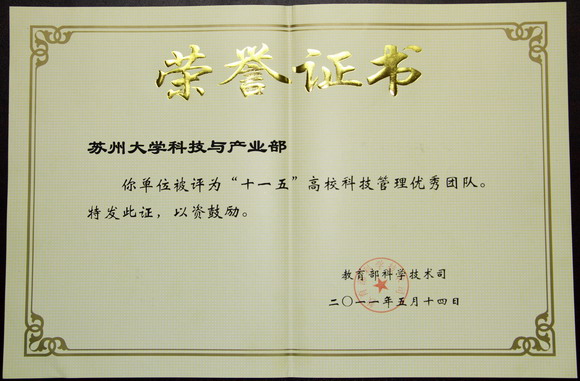 荣誉证书
苏州大学科技与产业部
你单位被评为“十一五”高校科技管理优秀团队。
特发此证，以资鼓励。
教育部科学技术司
二〇一一年五月十四日